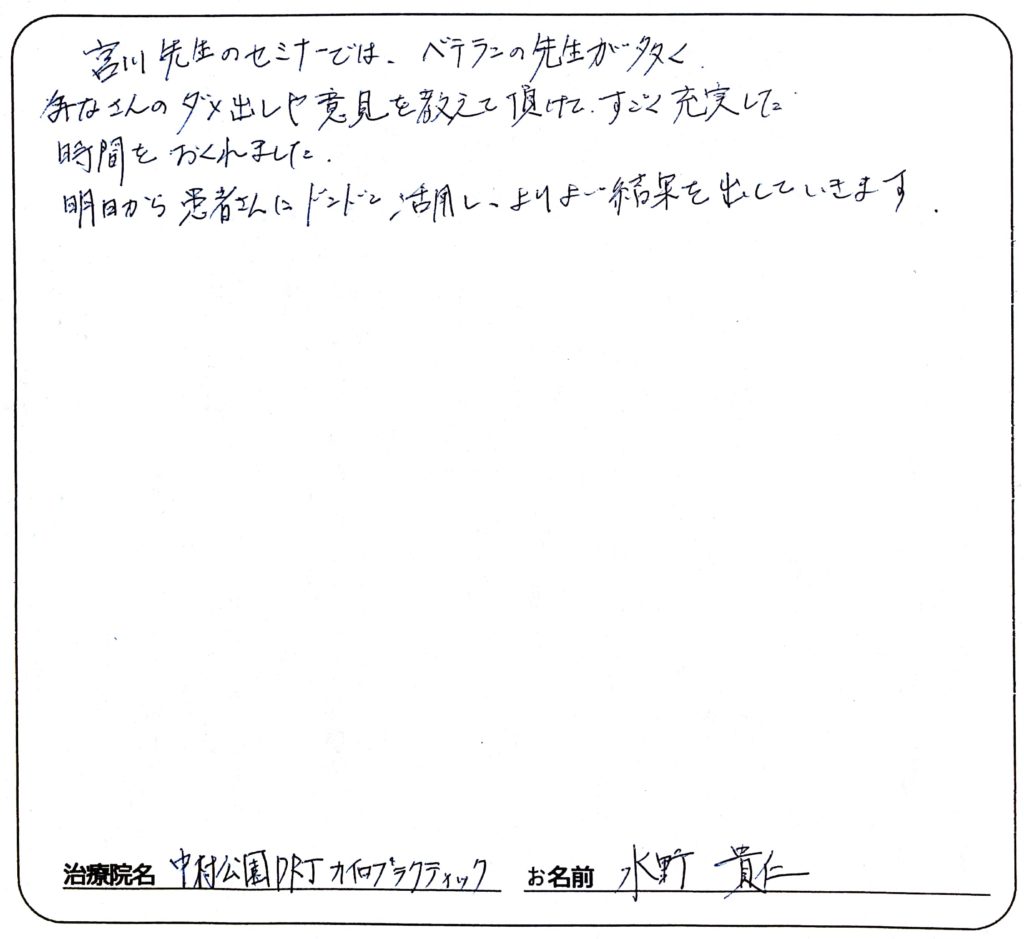 宮川先生のセミナーでは、ベテランの先生が多く、
みなさんのダメ出しや意見を教えて頂けて、すごく充実した
時間をおくれました。
明日から患者さんにドンドン活用し、よりよい結果を出していきます。
治療院名 中村公園DRTカイロプラクティック お名前 水野 貴仁